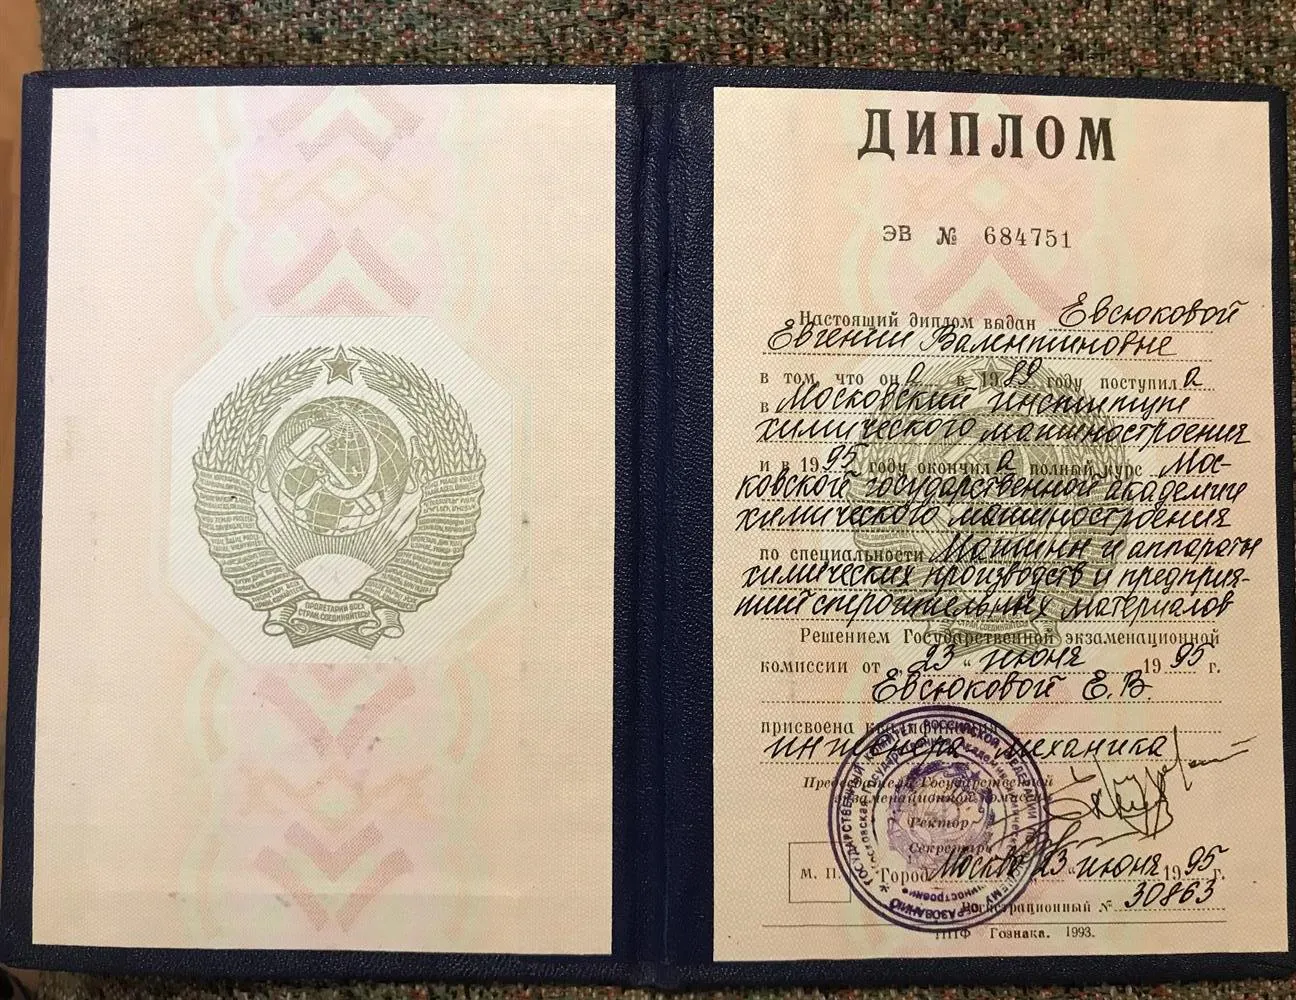 ПРОЛЕТАРИИ ВСЕХ
СТРАН, СОЕДИНЯЙТЕСЬ!
ДИПЛОМ
ЭВ № 684751
Настоящий диплом выдан Евсюковой
Евгении Валентиновне
в том, что она в 1989 году поступила
в Московский институт
химического машиностроения
и в 1995 году окончила полный курс Мос-
ковской государственной академии
химического машиностроения
по специальности Машины и аппараты
химических производств и предприя-
тий строительных материалов
Решением Государственной экзаменационной
комиссии от „23“ июня 1995 г.
Евсюковой Е.В.
присвоена квалификация
инженера механика
Председатель Государственной
экзаменационной комиссии
Ректор
Секретарь
М. П. Город Москва 23 „ июня 1995 г.
Регистрационный № 30863
ППФ Гознака. 1993.
ГОСУДАРСТВЕННЫЙ КОМИТЕТ РОССИЙСКОЙ ФЕДЕРАЦИИ ПО ВЫСШЕМУ ОБРАЗОВАНИЮ